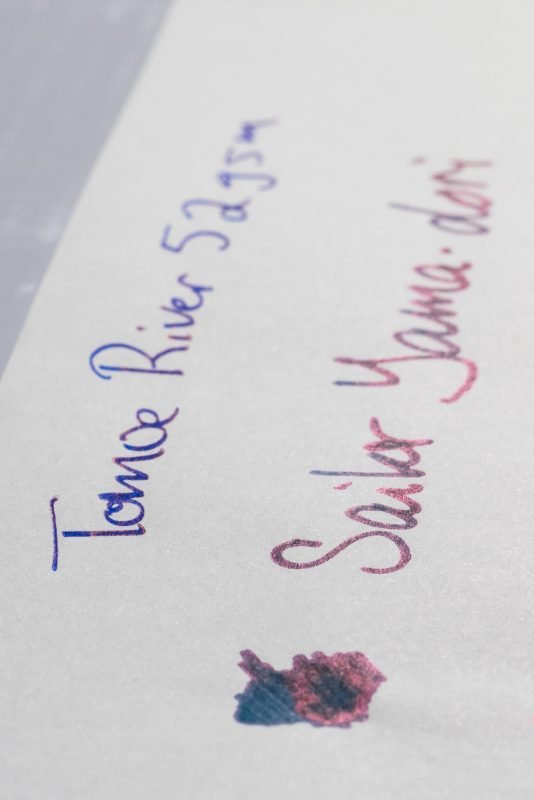 Tomoe River 52gsm
Sailor Yama-dori